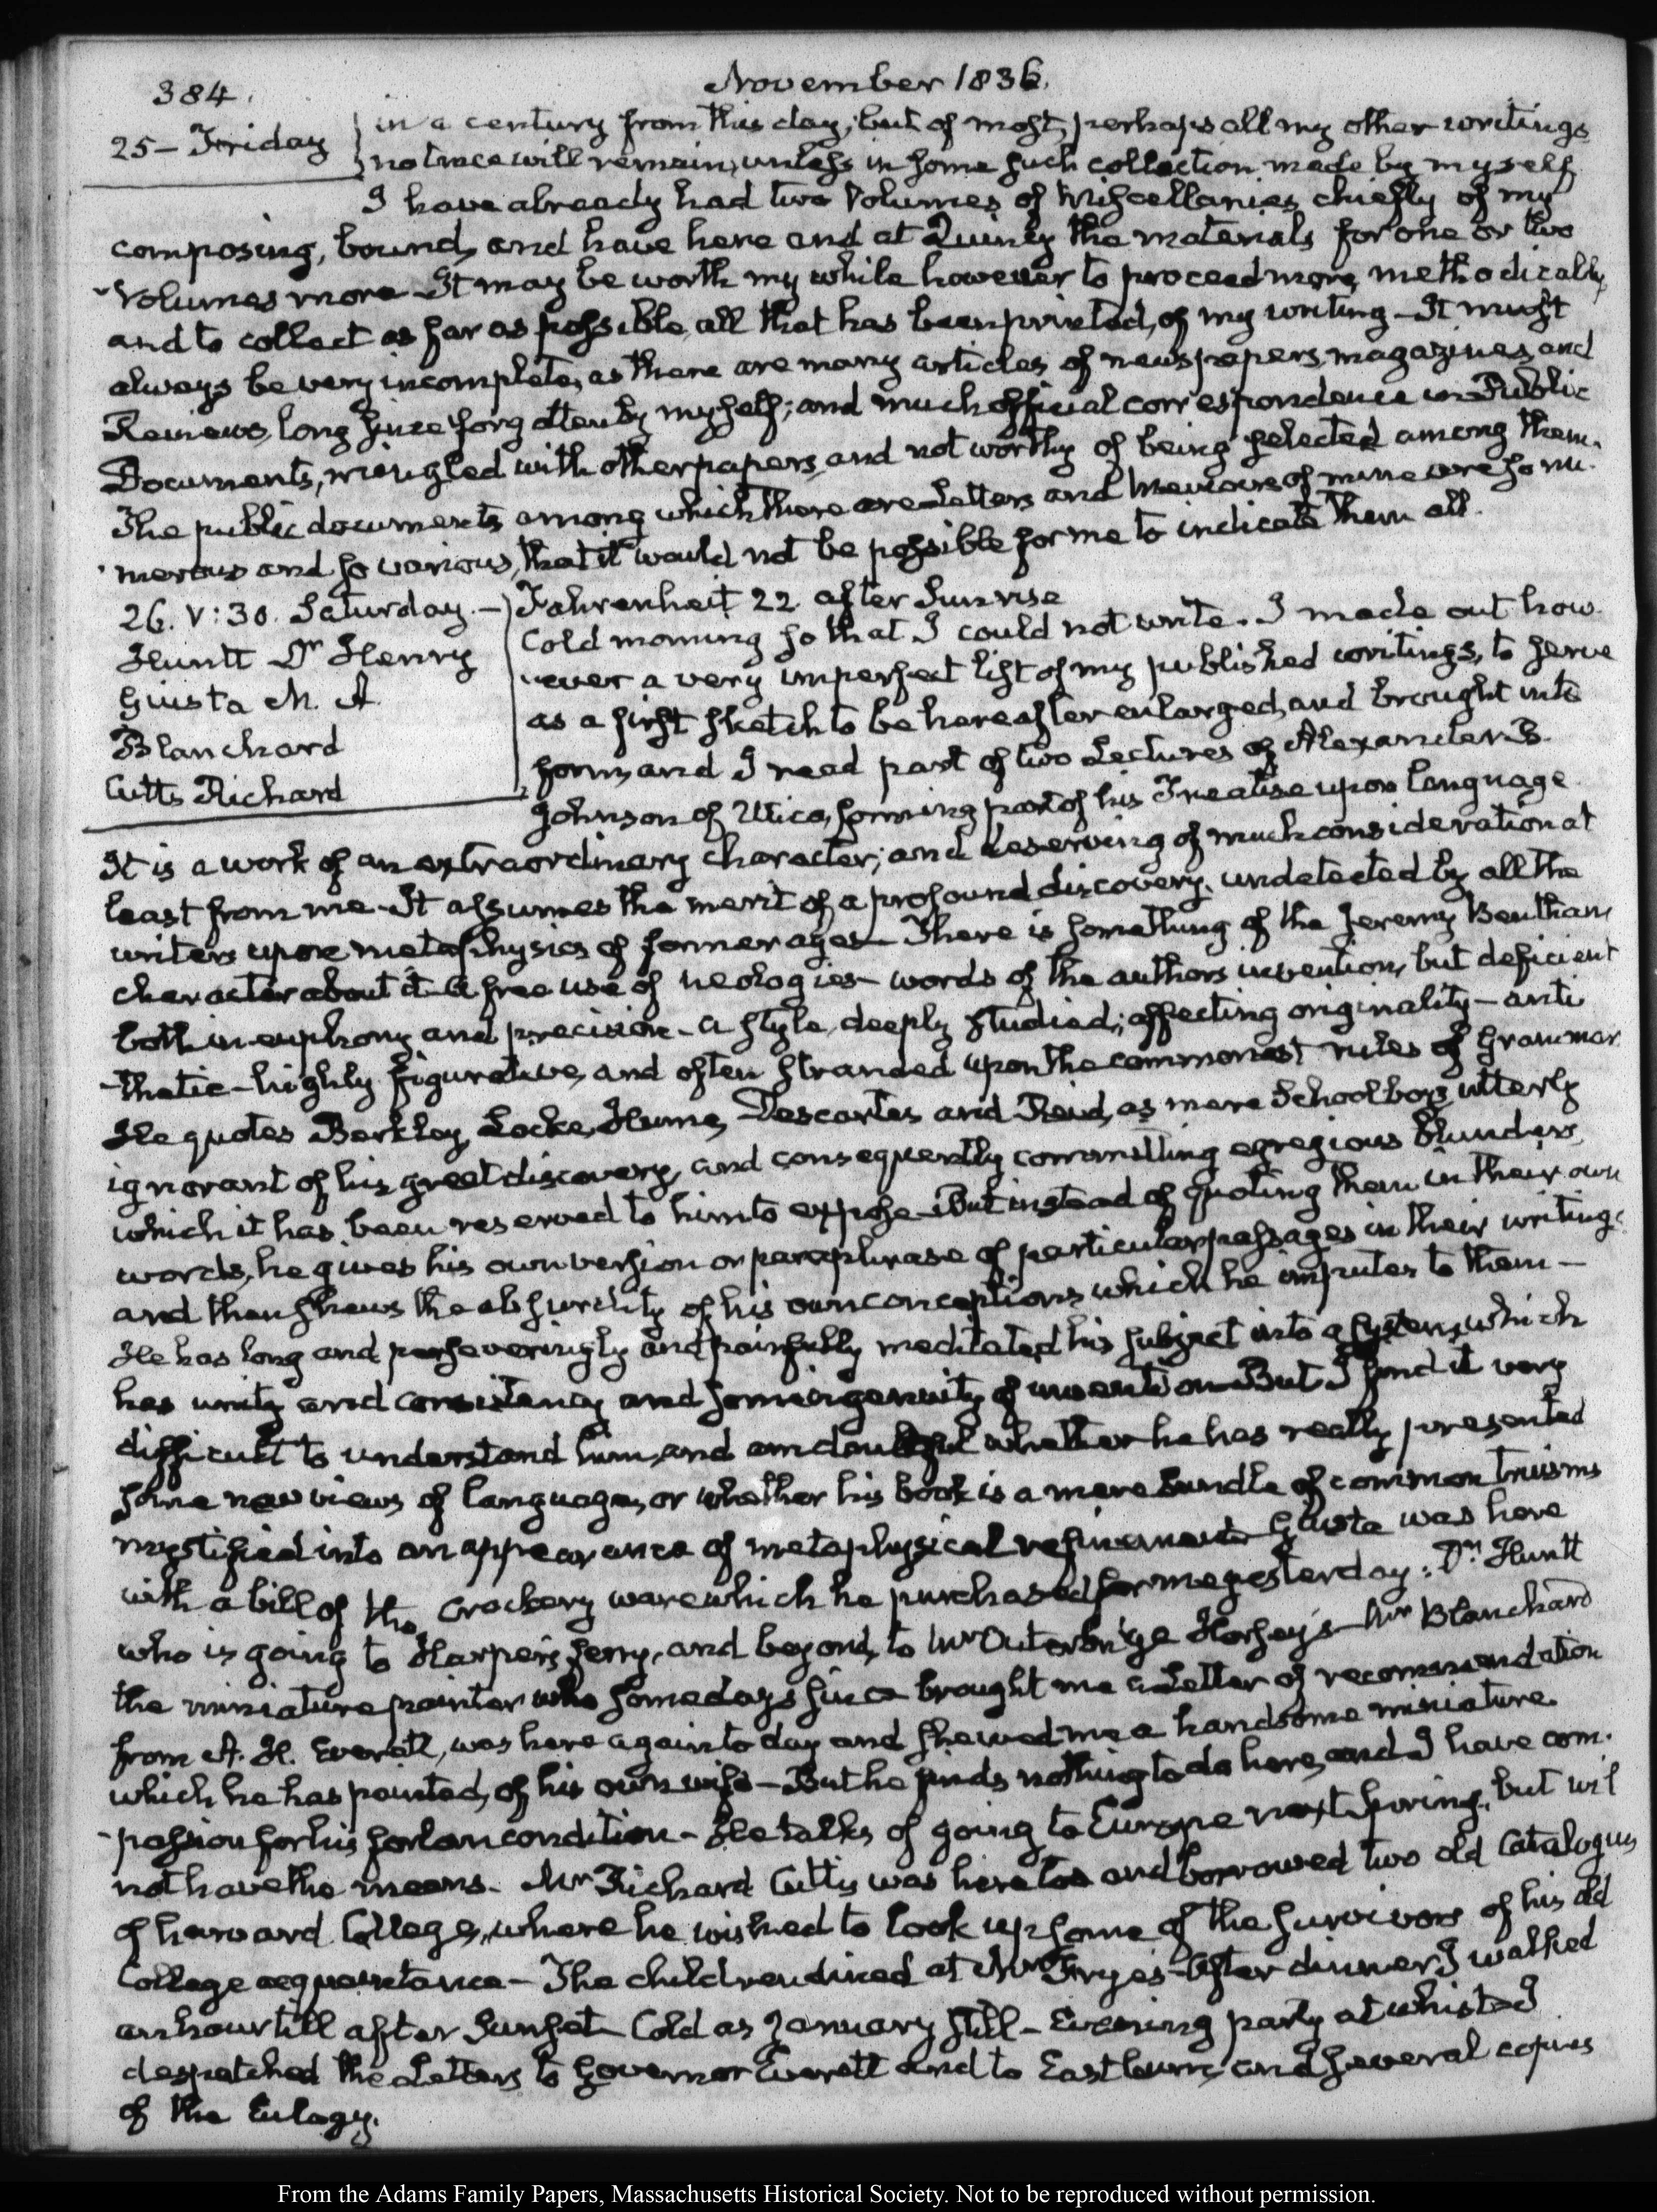 384.
November 1836.
25 - Friday
in a century from this day; but of most, perhaps all my other writings
no trace will remain, unless in some such collection made by myself
I have already had two Volumes of Miscellanies chiefly of my
composing, bound, and have here and at Quincy the materials for one or two
Volumes more - It may be worth my while however to proceed more methodically,
and to collect as far as possible, all that has been printed, of my writing - It must
always be very incomplete, as there are many articles of newspapers, magazines, and
Reviews, long since forgotten by myself; and much official correspondence in Public
Documents, mingled with other papers, and not worthy of being selected among them.
The public documents among which there are Letters and Memoirs of mine are so nu-
-merous and so various, that it would not be possible for me to indicate them all.
26. V:30. Saturday. -
Huntt Dr Henry
Giusta M. A.
Blanchard
Cutts Richard
Fahrenheit 22 after Sunrise
Cold morning so that I could not write. I made out how-
-ever a very imperfect list of my published writings, to serve
as a first sketch to be hereafter enlarged, and brought into
form, and I read part of two Lectures of Alexander B.
Johnson of Utica, forming part of his Treatise upon language
It is a work of an extraordinary character; and deserving of much consideration at
least from me - It assumes the merit of a profound discovery, undetected by all the
writers upon metaphysics of former ages - There is something of the Jeremy Bentham
character about it - A free use of neologies - words of the authors invention, but deficient
both in euphony and precision - a style, deeply studied; affecting originality - anti
-thetic - highly figurative, and often stranded upon the commonest rules of Grammar
He quotes Berkley, Locke, Hume, Descartes and Reid, as mere School boys, utterly
ignorant of his great discovery, and consequently committing egregious blunders,
which it has been reserved to him to expose - But instead of quoting them in their own
words, he gives his own version or paraphrase of particular passages in their writings
and then shews the absurdity of his own conceptions which he imputes to them -
He has long and perseveringly and painfully meditated his subject into a system, which
has unity and consistency and some ingenuity of invention - But I find it very
difficult to understand him, and am doubtful whether he has really presented
some new views of language, or whether his book is a mere bundle of common truisms
mystified into an appearance of metaphysical refinement - Giusta was here
with a bill of the crockery ware which he purchased for me yesterday: Dr Huntt
who is going to Harper's ferry, and beyond, to Mr Outerbridge Horsey's - Mr Blanchard
the miniature painter who some days since brought me a Letter of recommendation
from A. H. Everett, was here again to day and shewed me a handsome miniature
which he has painted, of his own wife - But he finds nothing to do here, and I have com-
-passion for his forlorn condition - He talks of going to Europe next Spring, but will
not have the means. Mr Richard Cutts was here too and borrowed two old Catalogues
of harvard College, where he wished to look up some of the survivors of his old
College acquaintance - The children dined at Mrs Frye's - After dinner I walked
an hour till after Sunset - Cold as January still - Evening party at whist - I
despatched the Letters to Governor Everett and to Eastburn, and several copies
of the Eulogy.
From the Adams Family Papers, Massachusetts Historical Society. Not to be reproduced without permission.